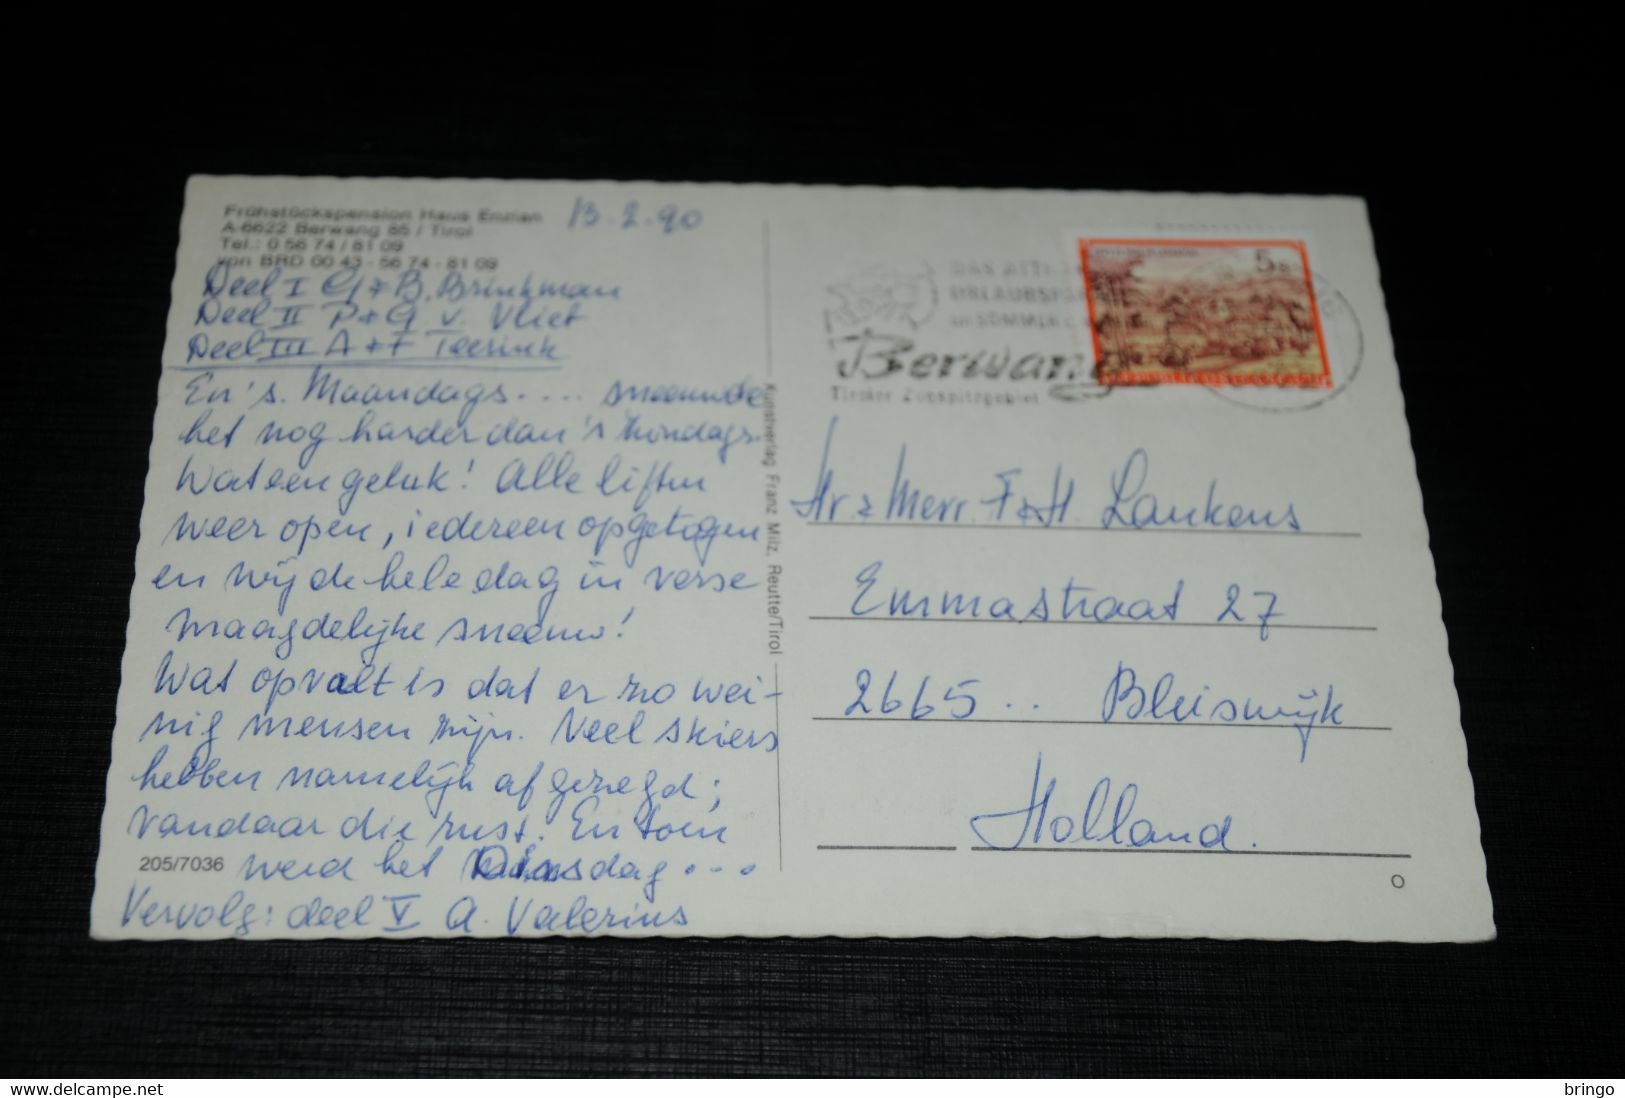 Frühstückspension Haus Enzian
A-6622 Berwang 85 / Tirol
Tel.: 0 56 74 / 81 09
von BRD 00 43 - 56 74 - 81 09
13.2.90
Deel I G + B. Brinkman
Deel II P + G v. Vliet
Deel III A + F Teerink
En 's Maandags.... sneeuwde
het nog harder dan 's Zondags.
Wat een geluk! Alle liften
weer open, iedereen opgetogen
en wij de hele dag in verse
maagdelijke sneeuw!
Wat opvalt is dat er zo wei-
nig mensen zijn. Veel skiers
hebben namelijk afgezegd;
vandaar die rust. En toen
werd het Dinsdag...
205/7036
Vervolg: deel V A. Valerius
Kunstverlag Franz Milz, Reutte/Tirol
5 S
URLAUBS
IM SOMMER
Berwang
Tiroler Zugspitzgebiet
Hr & Mevr. F & H. Lankens
Emmastraat 27
2665 .. Bleiswijk
Holland.
O
bringo